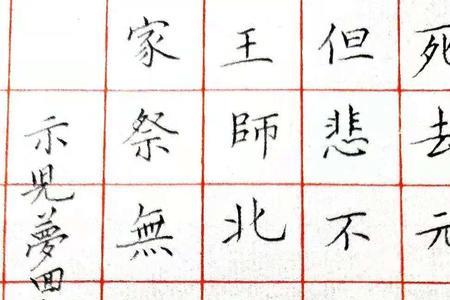 死去元
但悲不
王師北
家祭無
示児夢回